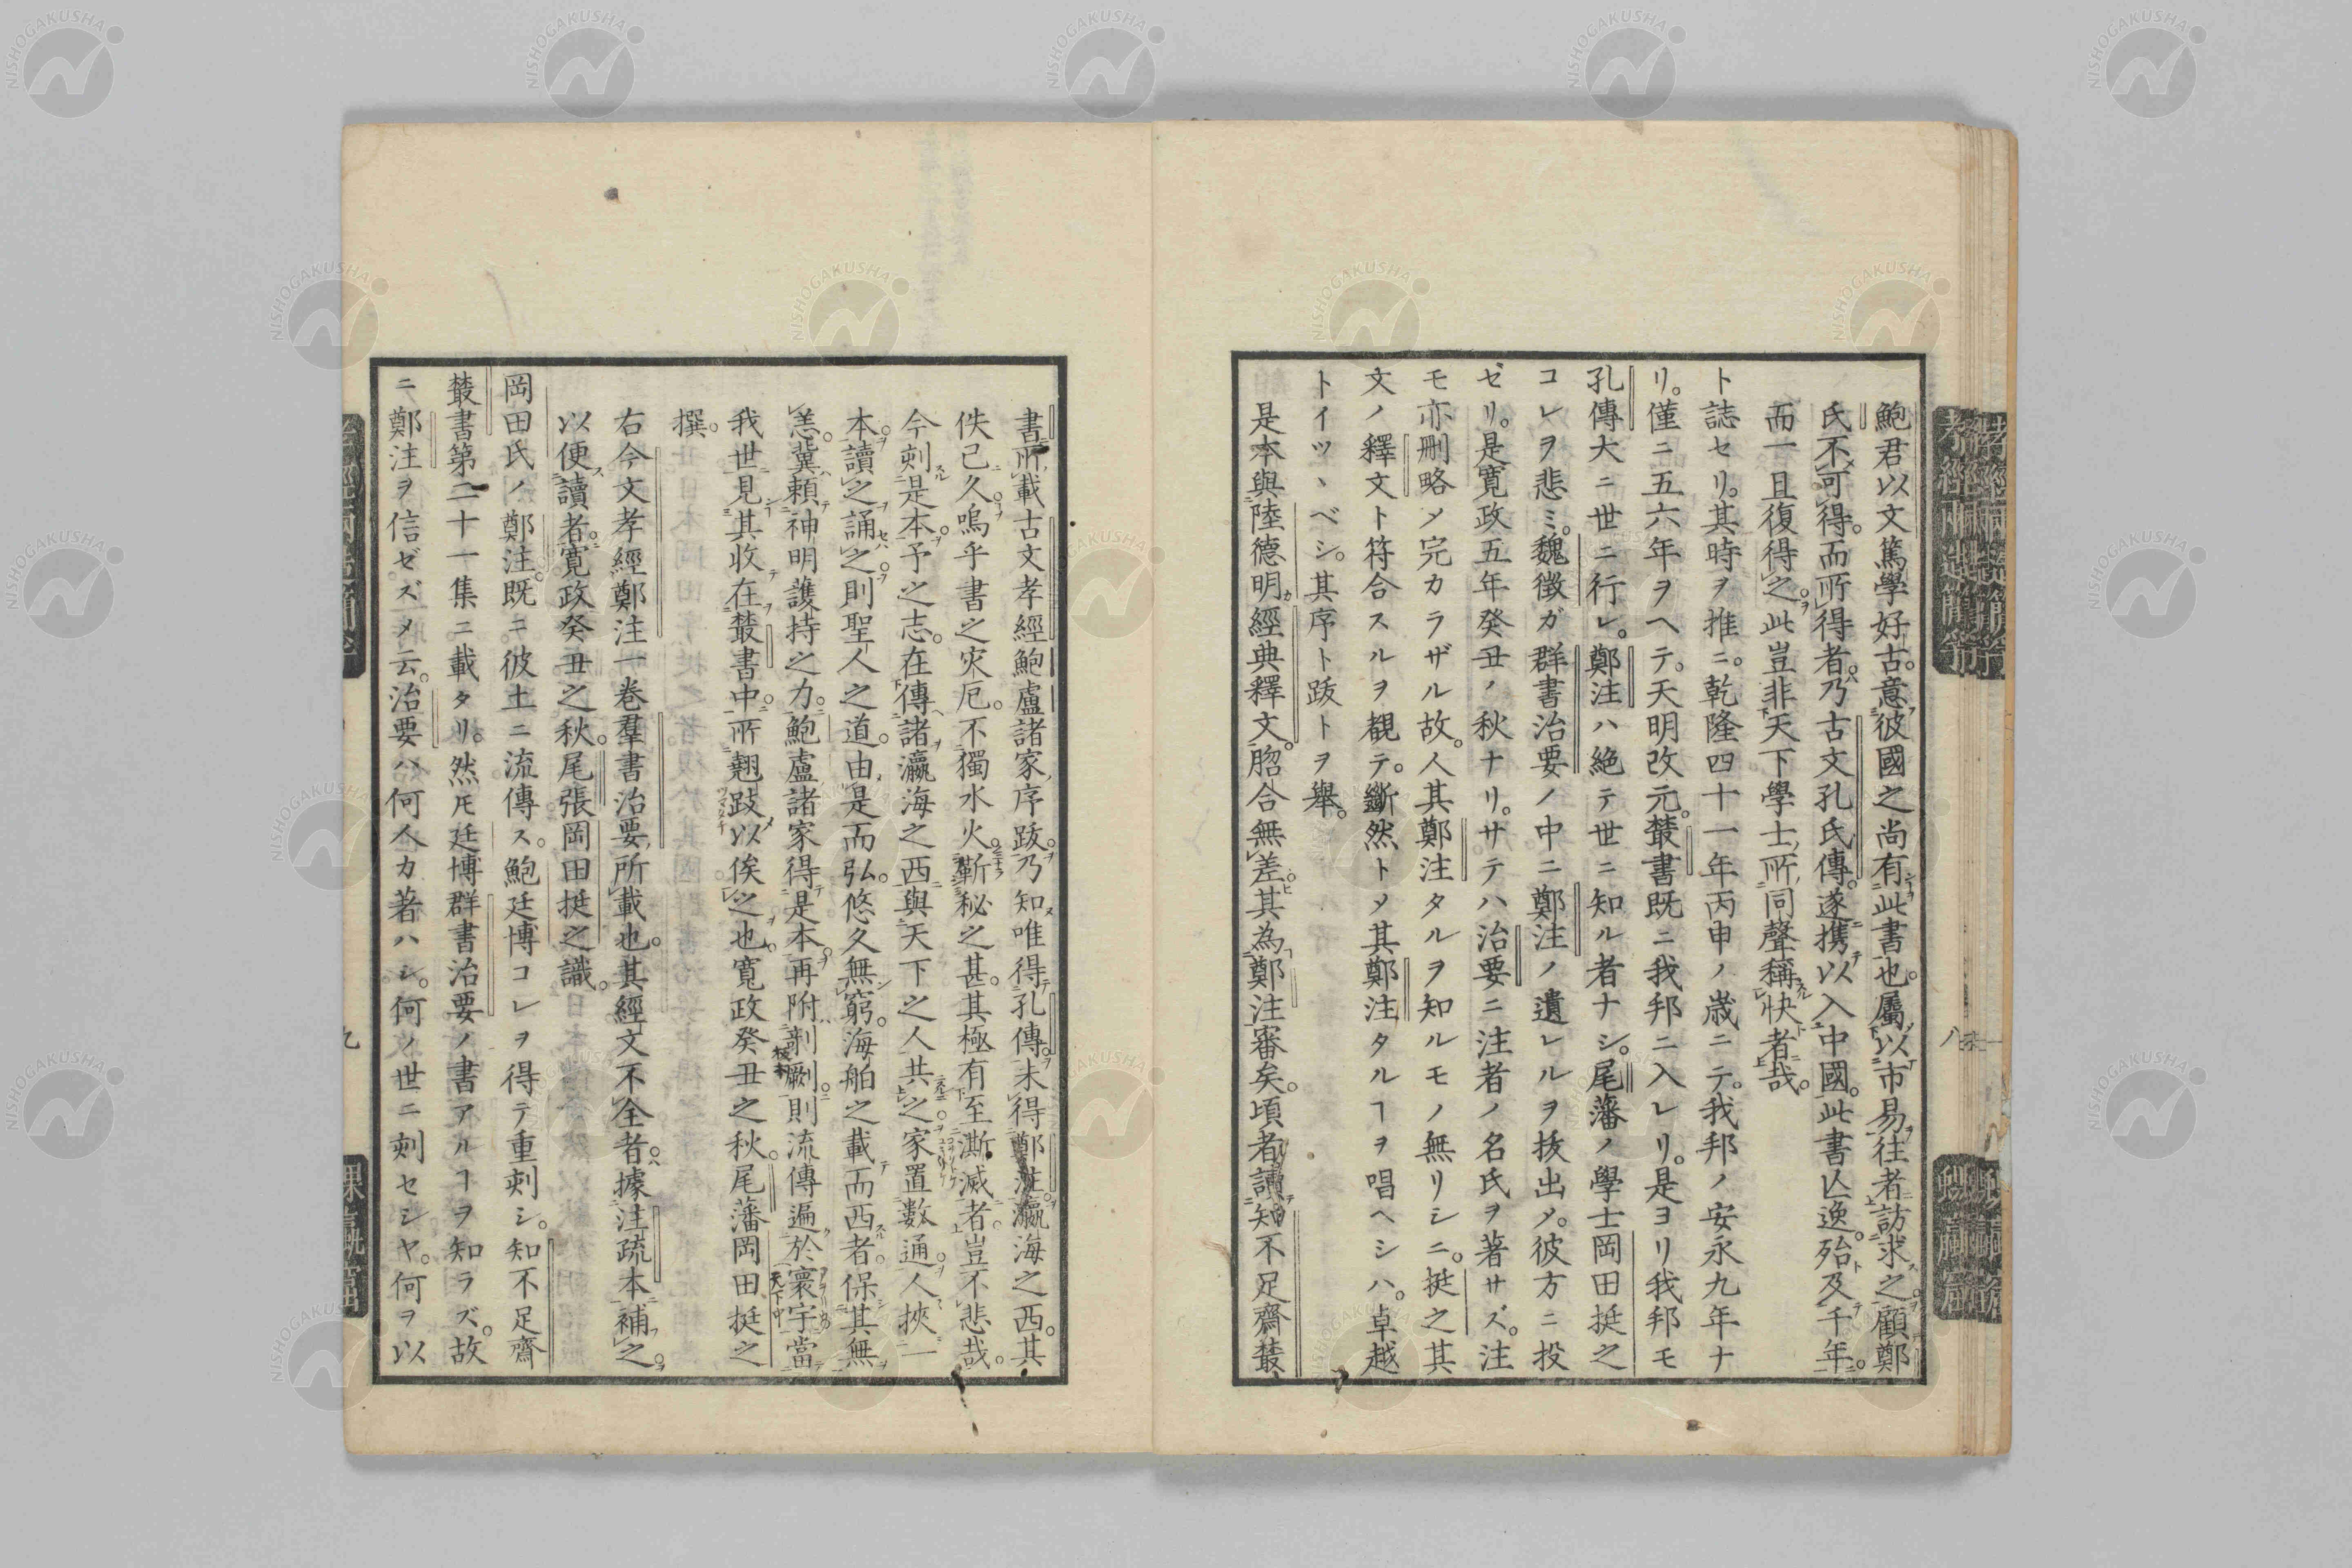 鮑君以文篤學好古。意彼國之尚有此書也。屬以市易往者訪求之。顧鄭
氏不可得。而所得者。乃古文孔氏傳。遂携以入中國。此書亾逸。殆及千年。
而一旦復得之。此豈非天下學士所同聲稱快者哉。
ト誌セリ。其時ヲ推ニ。乾隆四十一年丙申ノ歲ニテ。我邦ノ安永九年ナ
リ。僅ニ五六年ヲヘテ。天明改元。叢書既ニ我邦ニ入レリ。是ヨリ我邦モ
孔傳大ニ世ニ行レ。鄭注ハ絶テ世ニ知ル者ナシ。尾藩ノ學士岡田挺之
コレヲ悲ミ。魏徵ガ群書治要ノ中ニ鄭注ノ遺レルヲ拔出〆。彼方ニ投
ゼリ。是寬政五年癸丑ノ秋ナリ。サテハ治要ニ注者ノ名氏ヲ著サズ。注
モ亦刪略〆完カラザル故。人其鄭注タルヲ知ルモノ無リシニ。挺之其
文ノ釋文ト符合スルヲ覩テ。斷然ト〆其鄭注タルヿヲ唱ヘシハ。卓越
トイツヽベシ。其序ト跋トヲ舉。
是本與陸德明經典釋文。脗合無差。其為鄭注審矣。頃者讀知不足齋叢
書所載古文孝經鮑盧諸家序跋。乃知唯得孔傳。未得鄭注。瀛海之西。其
佚已久。嗚乎書之灾厄。不獨水火。蘄秘之甚。其極有至澌滅者。豈不悲哉。
今刻是本。予之志。在傳諸瀛海之西。與天下之人共之。家置數通。人挾一
本。讀之誦之。則聖人之道。由是而弘。悠久無窮。海舶之載而西者。保其無
恙。冀賴神明護持之力。鮑盧諸家得是本。再附剞劂。則流傳遍於寰宇。當
我世見其收在叢書中。所翹跂以俟之也。寬政癸丑之秋。尾藩岡田挺之
撰。
右今文孝經鄭注一卷羣書治要所載也。其經文不全者。據注疏本補之。
以便讀者。寬政癸丑之秋。尾張岡田挺之識。
岡田氏ノ鄭注。既ニ彼土ニ流傳ス。鮑廷博コレヲ得テ重刻シ。知不足齋
叢書第二十一集ニ載タリ。然𪜈廷博群書治要ノ書アルヿヲ知ラズ。故
ニ鄭注ヲ信ゼズ〆云。治要ハ何人カ著ハシ。何ノ世ニ刻セシヤ。何ヲ以